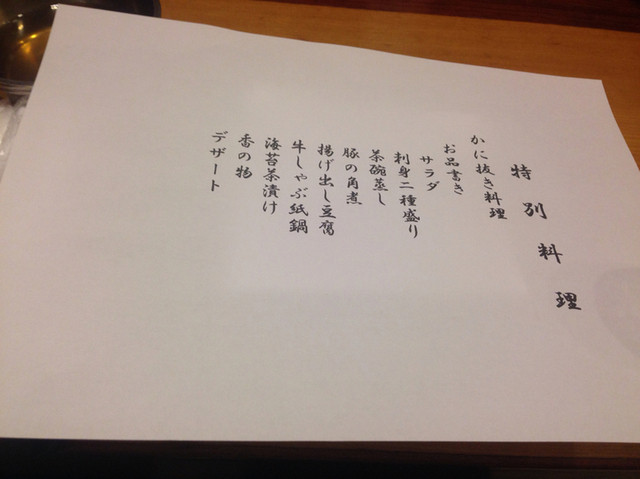 特別料理
かに抜き料理
お品書き
サラダ
刺身二種盛り
茶碗蒸し
豚の角煮
揚げ出し豆腐
牛しゃぶ紙鍋
海苔茶漬け
香の物
デザート